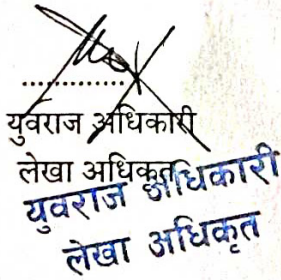 ....................
युवराज अधिकारी
लेखा अधिकृत
युवराज अधिकारी
लेखा अधिकृत